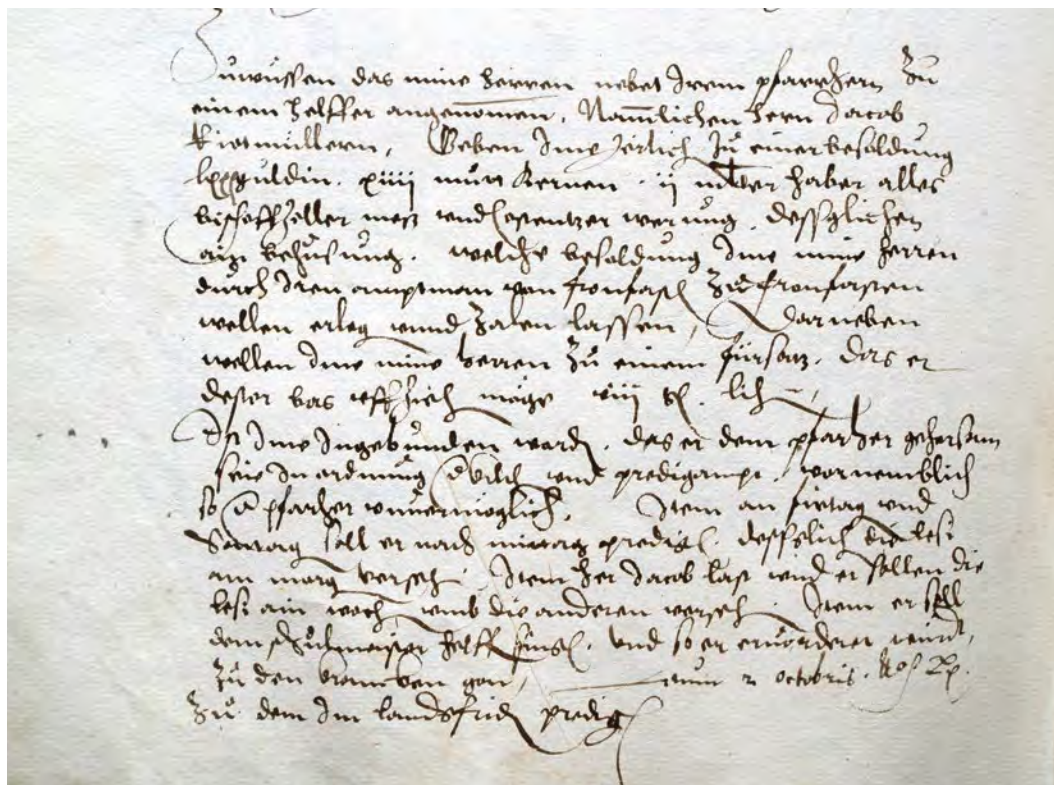 Zuwüssen das mine herren nebet Irem pfarrhern zu
einem helffer angenomen, Namlichen hern Jacob
Kiotmüllern, Geben Ime Jerlich zu einer besoldung
lxxx guldin. xiiij mütt kernen. ij malter haber alles
bischoffzeller mess und Costentzer werung. dessglichen
ain behusung. welche besoldung Ime mine herren
durch Iren amptman von fronfasten zu fronfasten
wellen erleg unnd zalen lassen, Darneben
wellen Ime mine herren zu einem fürsatz. das er
dester bas uffzieh möge viij fl. lich
Ist Ime Ingebunden word. das er dem pfarher gehorsam
seie In ordnung und predigampt. vornemblich
so pfarher unvermöglich, Item an firtag und
Sontag soll er nach mittag predig. dessglich die lesi
am morg verseh. Item her Jacob last und er sollen die
lesi ain woch umb die anderen verseh. Item er sell
dem schulmeister helff singe. und so er ervorderet wirdt,
zu den krancken gon, 2 octobris.
Zu dem Im landsfrid predig